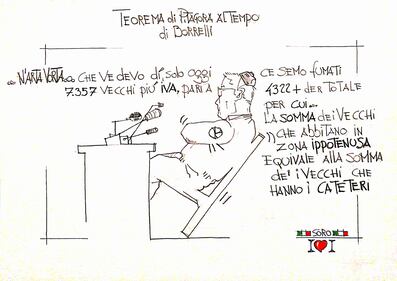 TEOREMA di PITAGORA AL TEMPO
di BORRELLI
... N'ARTA VORTA... CHE VE DEVO dì, solo oggi
7.357 VECCHI PIU' IVA, PARI A
CE SEMO FUMATI
4322 + der TOTALE
PER CUI...
LA SOMMA dei VECCHI
CHE ABBITANO IN
ZONA IPPOTENUSA
EQUIVALE ALLA SOMMA
DE' i VECCHI CHE
HANNO i CATETERI
SORO
I I